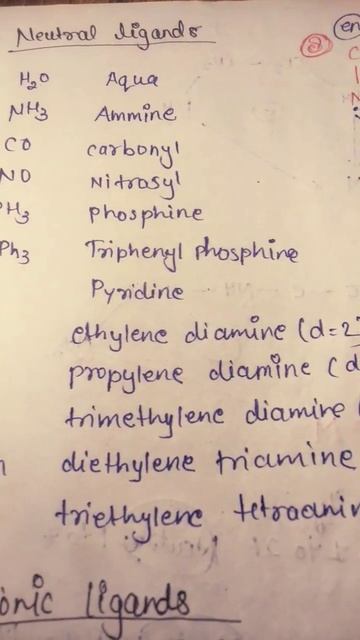 Neutral ligands
(en
(a)
H₂O Aqua
NH₃ Ammine
CO carbonyl
NO Nitrosyl
PH₃ phosphine
Ph₃ Triphenyl phosphine
Pyridine
ethylene diamine (d=2
propylene diamine (d
trimethylene diamine (
n diethylene triamine
triethylene tetraamin
onic ligands